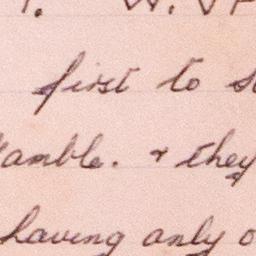 first to
amble. & they
having only